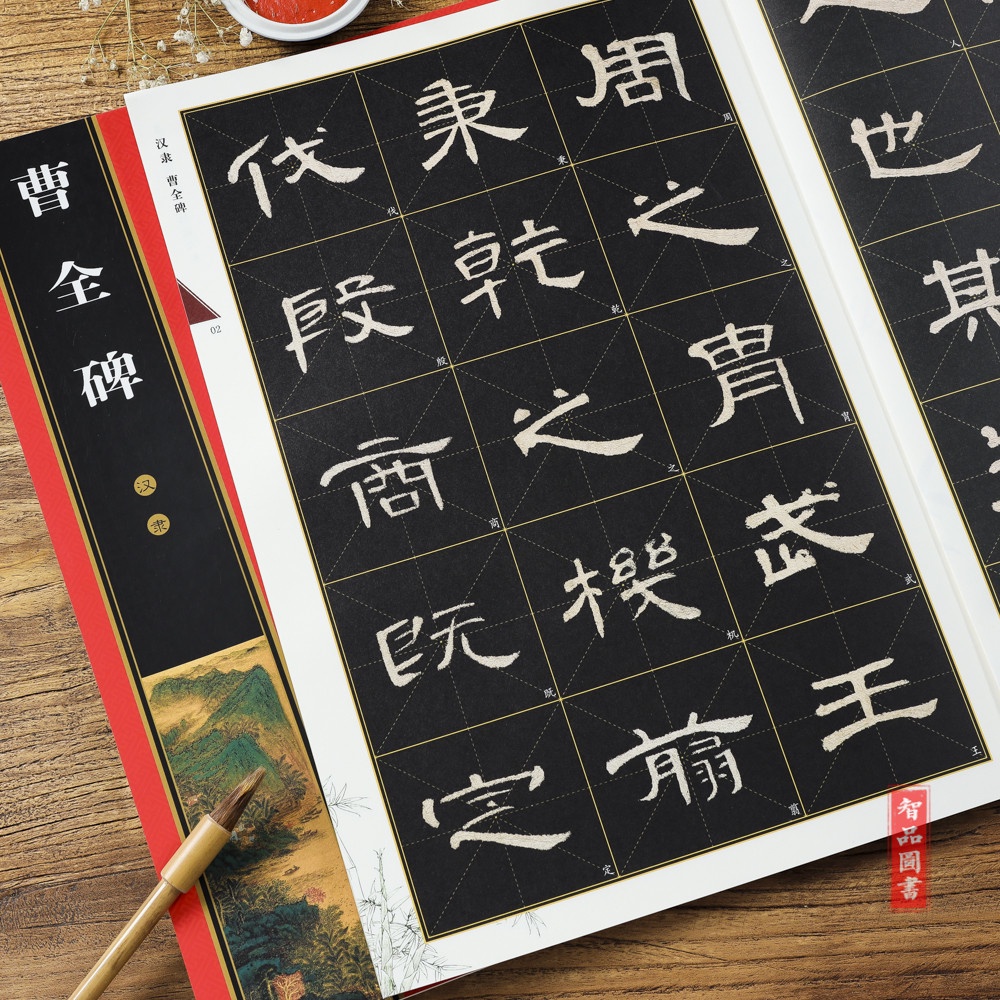 曹全碑
汉隶
汉隶 曹全碑
02
周之胄武王
秉乾之機翦
伐殷商既定
周
之
胄
武
王
秉
乾
之
机
翦
伐
殷
商
既
定
也
其
人
智品圖書